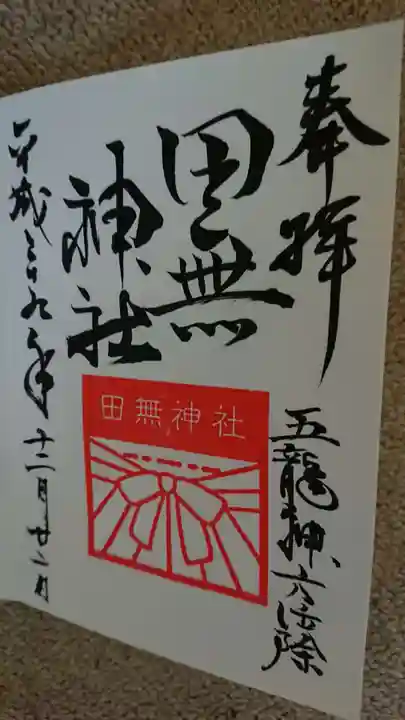 奉拝
五龍神 六法除
田無
神社
田無神社
平成二十九年 十二月廿二日